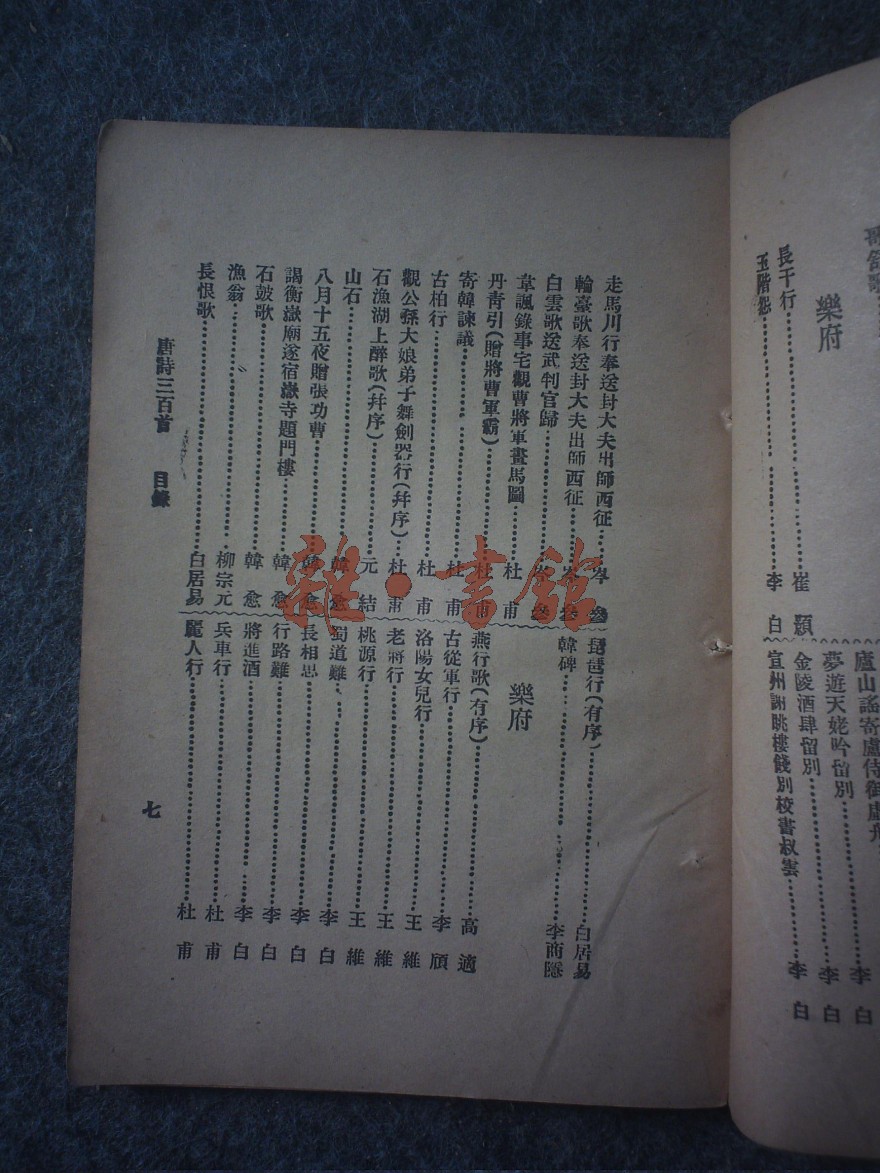 樂府
長干行 崔顥
玉階怨 李白
夢遊天姥吟留別 李白
金陵酒肆留別 李白
宣州謝朓樓餞別校書叔雲 李白
走馬川行奉送封大夫出師西征 岑參
輪臺歌奉送封大夫出師西征 岑參
白雲歌送武判官歸 岑參
韋諷錄事宅觀曹將軍畫馬圖 杜甫
丹青引(贈將曹軍霸) 杜甫
寄韓諫議 杜甫
古柏行 杜甫
觀公孫大娘弟子舞劍器行(幷序) 杜甫
石漁湖上醉歌(幷序) 元結
山石 韓愈
八月十五夜贈張功曹 韓愈
謁衡嶽廟遂宿嶽寺題門樓 韓愈
石鼓歌 韓愈
漁翁 柳宗元
長恨歌 白居易
琵琶行(有序) 白居易
韓碑 李商隱
樂府
燕行歌(有序) 高適
古從軍行 李頎
洛陽女兒行 王維
老將行 王維
桃源行 王維
蜀道難 李白
長相思 李白
行路難 李白
將進酒 李白
兵車行 杜甫
麗人行 杜甫
唐詩三百首 目錄
七
雜·書館